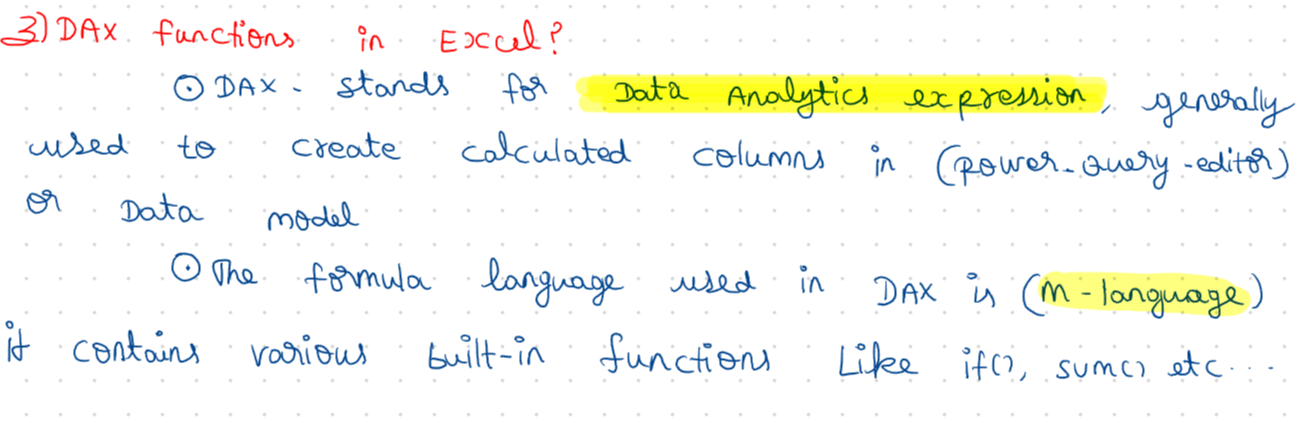 3) DAX functions in Excel?
⊙ DAX - stands for Data Analytics expression, generally
used to create calculated columns in (power-Query-editor)
or Data model
⊙ The formula language used in DAX is (M-language)
it contains various built-in functions Like if(), sum() etc....